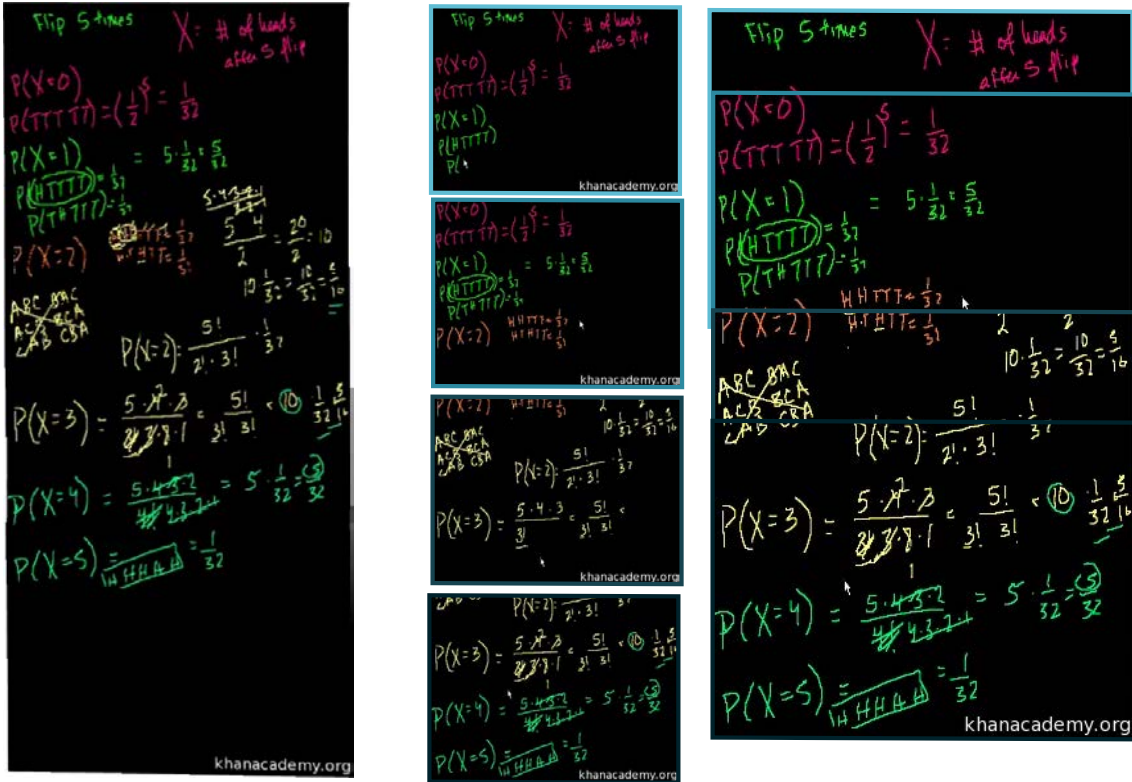 Flip 5 times
X = # of heads
after 5 flip
P(X=0)
P(TTTTT) = (1/2)^5 = 1/32
P(X=1) = 5·1/32 = 5/32
P(HTTTT) = 1/32
P(THTTT) = 1/32
5·4·3·2·1
P(X=2)
HTHTT = 1/32
5 4 / 2 = 20/2 = 10
10·1/32 = 10/32 = 5/16
ABC BAC
BCA
ACB CBA
CAB
P(X=2) = 5!/2!·3! · 1/32
P(X=3) = 5·4·3 / 3·2·1 = 5!/3! 3! = 10 · 1/32 5/16
P(X=4) = 5·4·3·2 / 4! 4·3·2·1 = 5 · 1/32 = 5/32
P(X=5) = HHHHH = 1/32
khanacademy.org
Flip 5 times
X = # of heads
after 5 flip
P(X=0)
P(TTTTT) = (1/2)^5 = 1/32
P(X=1)
P(HTTTT)
P(
khanacademy.org
P(X=0)
P(TTTTT) = (1/2)^5 = 1/32
P(X=1) = 5·1/32 = 5/32
P(HTTTT) = 1/32
P(THTTT) = 1/32
P(X=2)
HHTTT = 1/32
HTHTT = 1/32
khanacademy.org
P(X=2)
HTHTT = 1/32
2 2
10·1/32 = 10/32 = 5/16
ABC BAC
BCA
ACB CBA
CAB
P(X=2) = 5!/2!·3! · 1/32
P(X=3) = 5·4·3 / 3! = 5!/3! 3! =
khanacademy.org
P(X=2) = 5!/2!·3!
P(X=3) = 5·4·3 / 3·2·1 = 5!/3! 3! = 10 · 1/32 5/16
P(X=4) = 5·4·3·2 / 4! 4·3·2·1 = 5 · 1/32 = 5/32
P(X=5) = HHHHH = 1/32
khanacademy.org
Flip 5 times
X = # of heads
after 5 flip
P(X=0)
P(TTTTT) = (1/2)^5 = 1/32
P(X=1) = 5·1/32 = 5/32
P(HTTTT) = 1/32
P(THTTT) = 1/32
HHTTT = 1/32
P(X=2) HTHTT = 1/32
2 2
10·1/32 = 10/32 = 5/16
ABC BAC
BCA
ACB CBA
CAB
P(X=2) = 5!/2!·3! · 1/32
P(X=3) = 5·4·3 / 3·2·1 = 5!/3! 3! = 10 · 1/32 5/16
P(X=4) = 5·4·3·2 / 4! 4·3·2·1 = 5 · 1/32 = 5/32
P(X=5) = HHHHH = 1/32
khanacademy.org